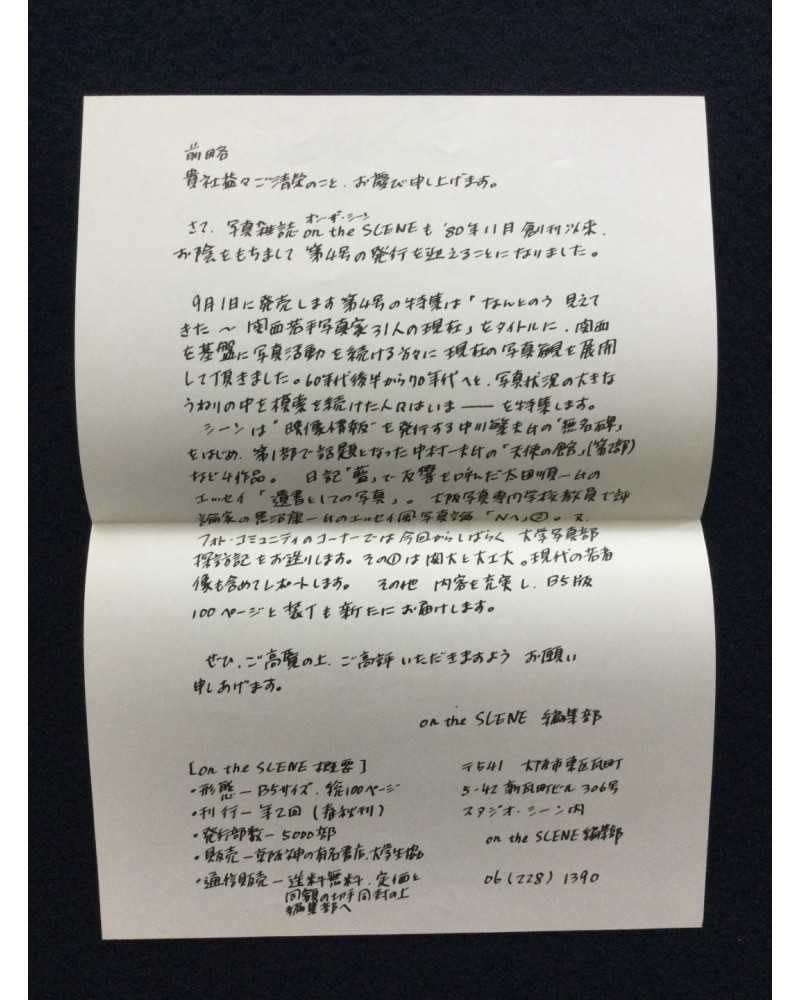 前略
貴社益々ご清栄のこと、お慶び申し上げます。
オン・ザ・シーン
さて、写真雑誌 on the SCENE も '80年11月創刊以来、
お陰をもちまして 第4号の発行を迎えることになりました。
9月1日に発売します第4号の特集は「なんとのう 見えて
きた 〜 関西若手写真家31人の現在」をタイトルに、関西
を基盤に写真活動を続ける方々に現在の写真観を展開
して頂きました。60年代後半から70年代へと、写真状況の大きな
うねりの中を模索を続けた人々はいま ―― を特集します。
シーンは "映像情報" を発行する中川繁夫氏の「無名碑」
をはじめ、第1部で話題となった中村一夫氏の「天使の館」(第2部)
など4作品。 日記「藍」で反響を呼んだ太田順一氏の
エッセイ「遺書としての写真」。 大阪写真専門学校教員で評
論家の 氏のエッセイ風写真論「Nへ」②。又、
フォト・コミュニティのコーナーでは今回からしばらく 大学写真部
探訪記をお送りします。その①は関大と大工大。現代の若者
像も含めてレポートします。 その他 内容を充実し、B5版
100ページと装丁も新たにお届けします。
ぜひ、ご高覧の上、ご高評いただきますよう お願い
申しあげます。
on the SCENE 編集部
[on the SCENE 概要]
・形態ーB5サイズ、総100ページ
・刊行ー年2回(春秋刊)
・発行部数ー5000部
・販売ー京阪神の有名書店、大学生協
・通信販売ー送料無料、定価と
同額の切手同封の上
編集部へ
〒541 大阪市東区瓦町
5-42 新瓦町ビル 306号
スタジオ・シーン内
on the SCENE 編集部
06(228)1390